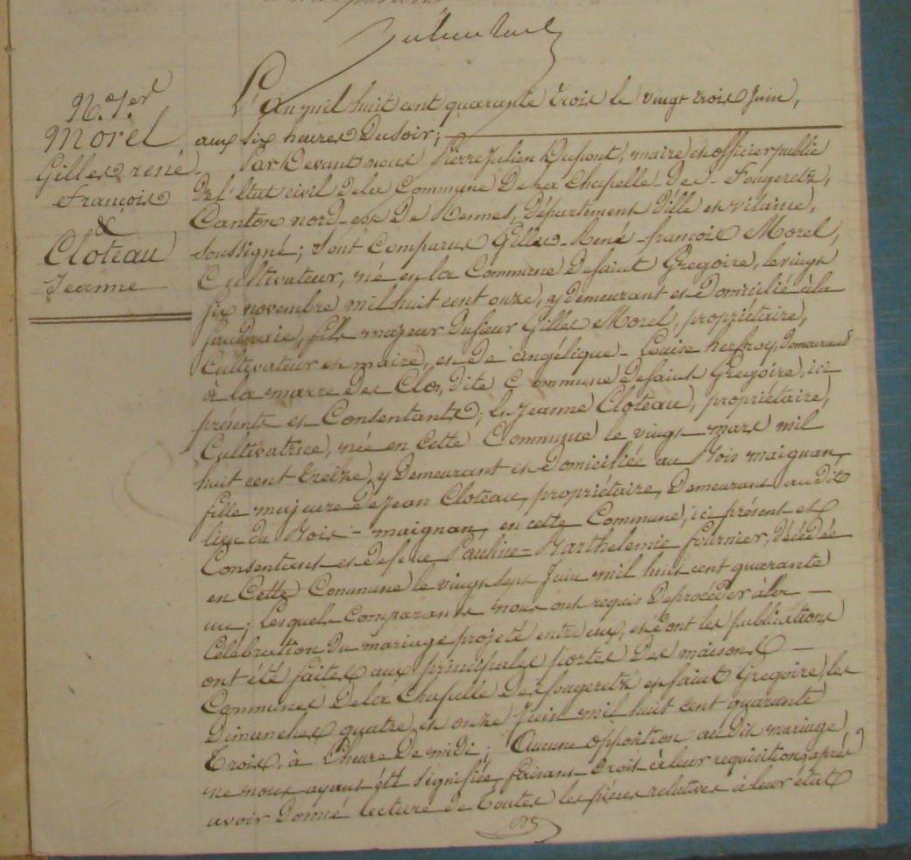 N.° 1er
Morel
Gilles rené
François
&
Cloteau
Jeanne
L'an mil huit cent quarante trois le vingt trois Juin,
aux six heures du soir;
Par devant nous Pierre Julien Dupont, maire et officier public
de l'Etat civil de la Commune de La Chapelle-des-Fougeretz,
Canton nord-est de Rennes, Département d'ille et vilaine,
soussigné; sont Comparus Gilles-René-françois Morel,
Cultivateur, né en la Commune de saint Gregoire, le vingt
six novembre mil huit cent onze, y demeurant et Domicilié à la
fils majeur du sieur Gilles Morel, propriétaire,
Cultivateur et maire, et de angélique-Louise herfroy, demeurant
à la marre des Clos, dite Commune de saint Gregoire, ici
présents et Consentants; & Jeanne Cloteau, propriétaire,
Cultivatrice, née en Cette Commune le vingt mars mil
huit cent treize, y Demeurant et Domiciliée au Bois maignan,
fille majeure de Jean Cloteau, propriétaire, Demeurant au dit
lieu du Bois-maignan, en cette Commune, ici présent et
Consentant et de feue Pauline-Barthelemie fournier, Décédée
en Cette Commune le vingt sept Juin mil huit cent quarante
un; Lesquels Comparants nous ont requis de procéder à la
Célébration du mariage projeté entre eux, et dont les publications
ont été faites aux principales portes des maisons
Communes de la Chapelle des fougeretz et saint Gregoire, les
Dimanches quatre et onze Juin mil huit cent quarante
Trois, à L'heure de midi; Aucune opposition au dit mariage
ne nous ayant été signifiée, faisant droit à leur requisition, après
avoir Donné lecture de Toutes les pièces relatives à leur état